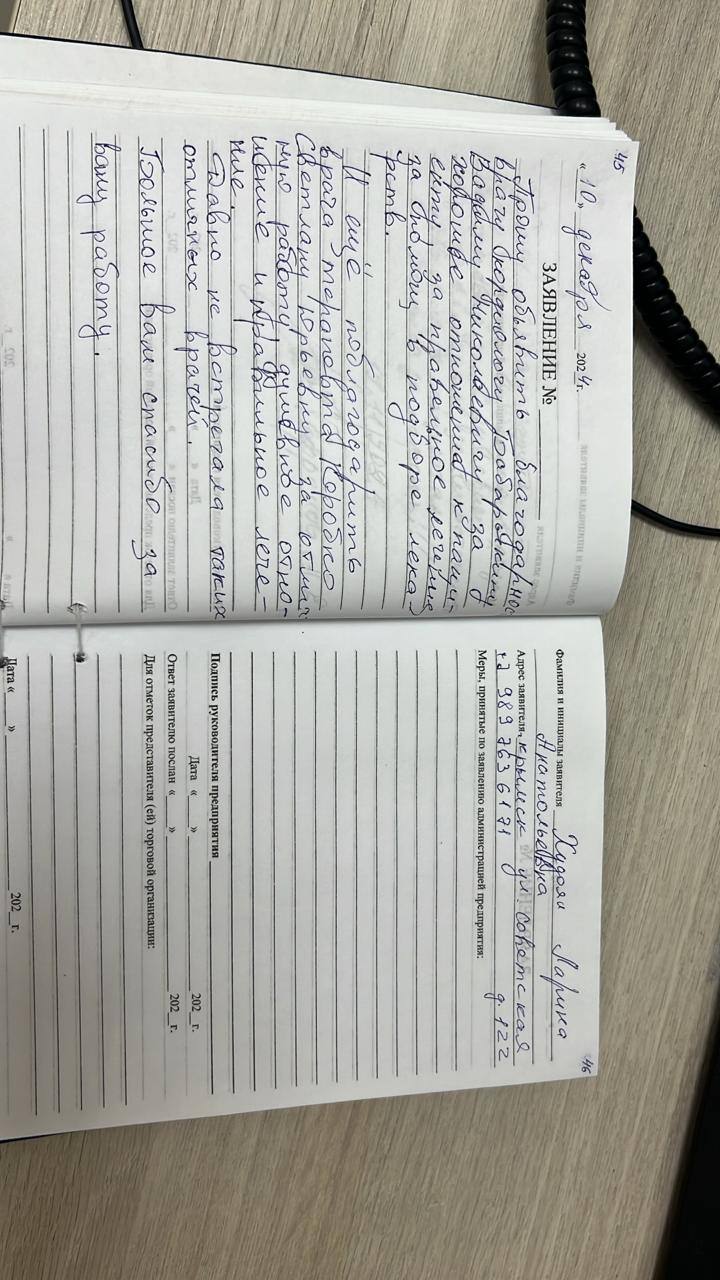 45
« 10 » декабря 2024г.
ЗАЯВЛЕНИЕ № ____
Прошу объявить благодарнос
врачу кардиологу Бабарыкину
Вадиму Николаевичу за
хорошее отношение к паци-
енту за правельное лечение
за помощь в подборе лека-
рств.
И ещё поблагодарить
врача терапевта Коробко
Светлану Юрьевну за отлич
ную работу душевное отно-
шение и правильное лече-
ние.
Давно не встречала таких
отличных врачей.
Большое вам спасибо за
вашу работу.
46
Фамилия и инициалы заявителя Худоян Ларина
Анатольевна
Адрес заявителя г. крымск ул. советская
+7 989 763 6171 д. 122
Меры, принятые по заявлению администрацией предприятия:
Подпись руководителя предприятия
Дата « ____ » ____ 202__г.
Ответ заявителю послан « ____ » ____ 202__г.
Для отметок представителя (ей) торговой организации:
Дата « ____ » ____ 202__г.